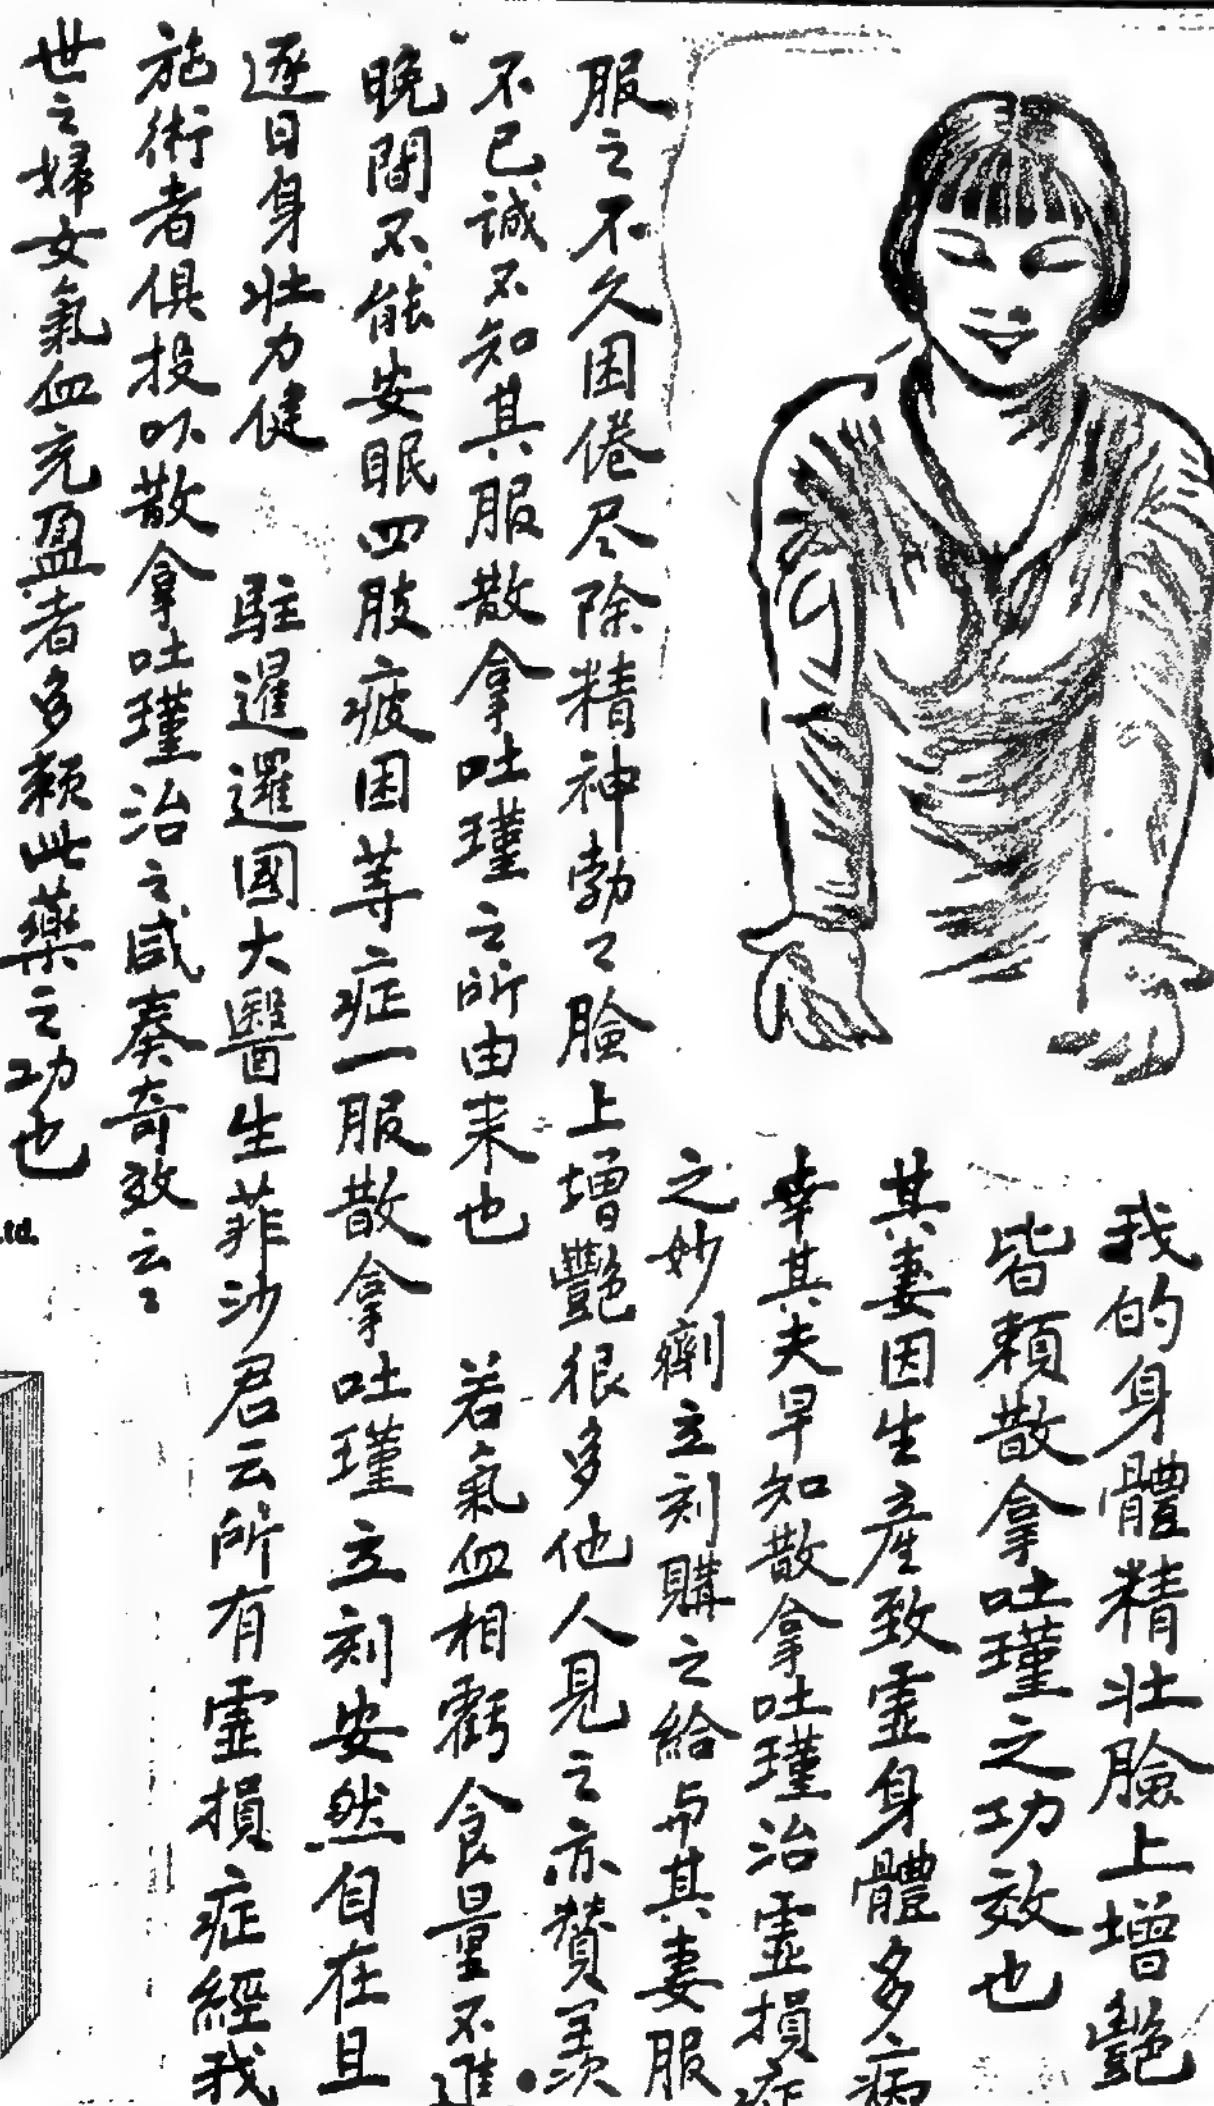 我的身體精壯臉上增艷
皆賴散拿吐瑾之功效也
其妻因生產致虛身體多病
幸其夫早知散拿吐瑾治虛損症
之妙劑立刻購之給与其妻服
服之不久困倦尽除精神勃々臉上增艷很多他人見之亦贊羨
不已誠不知其服散拿吐瑾之所由来也 若氣血相虧食量不進
晚間不能安眠四肢疲困等症一服散拿吐瑾立刻安然自在且
逐日身壯力健 駐暹邏國大醫生菲沙君云所有虛損症經我
施術者俱投以散拿吐瑾治之咸奏奇效云々
世之婦女氣血充盈者多賴此藥之功也
Ltd.